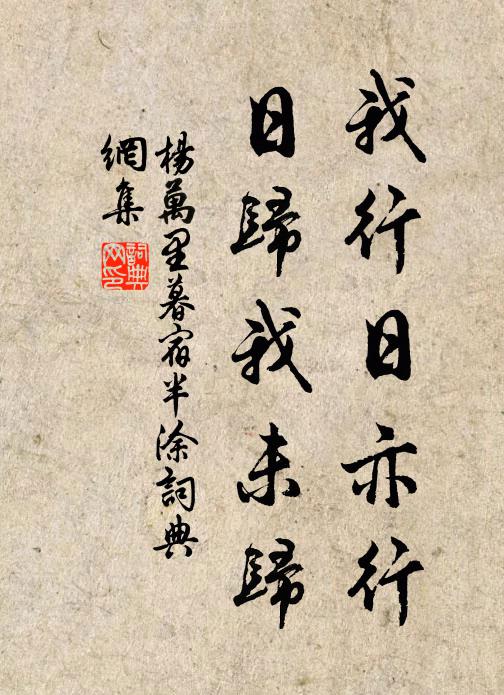 我行日亦行
日歸我未歸
楊萬里暮宿半涂詞典
網集
詞典网印